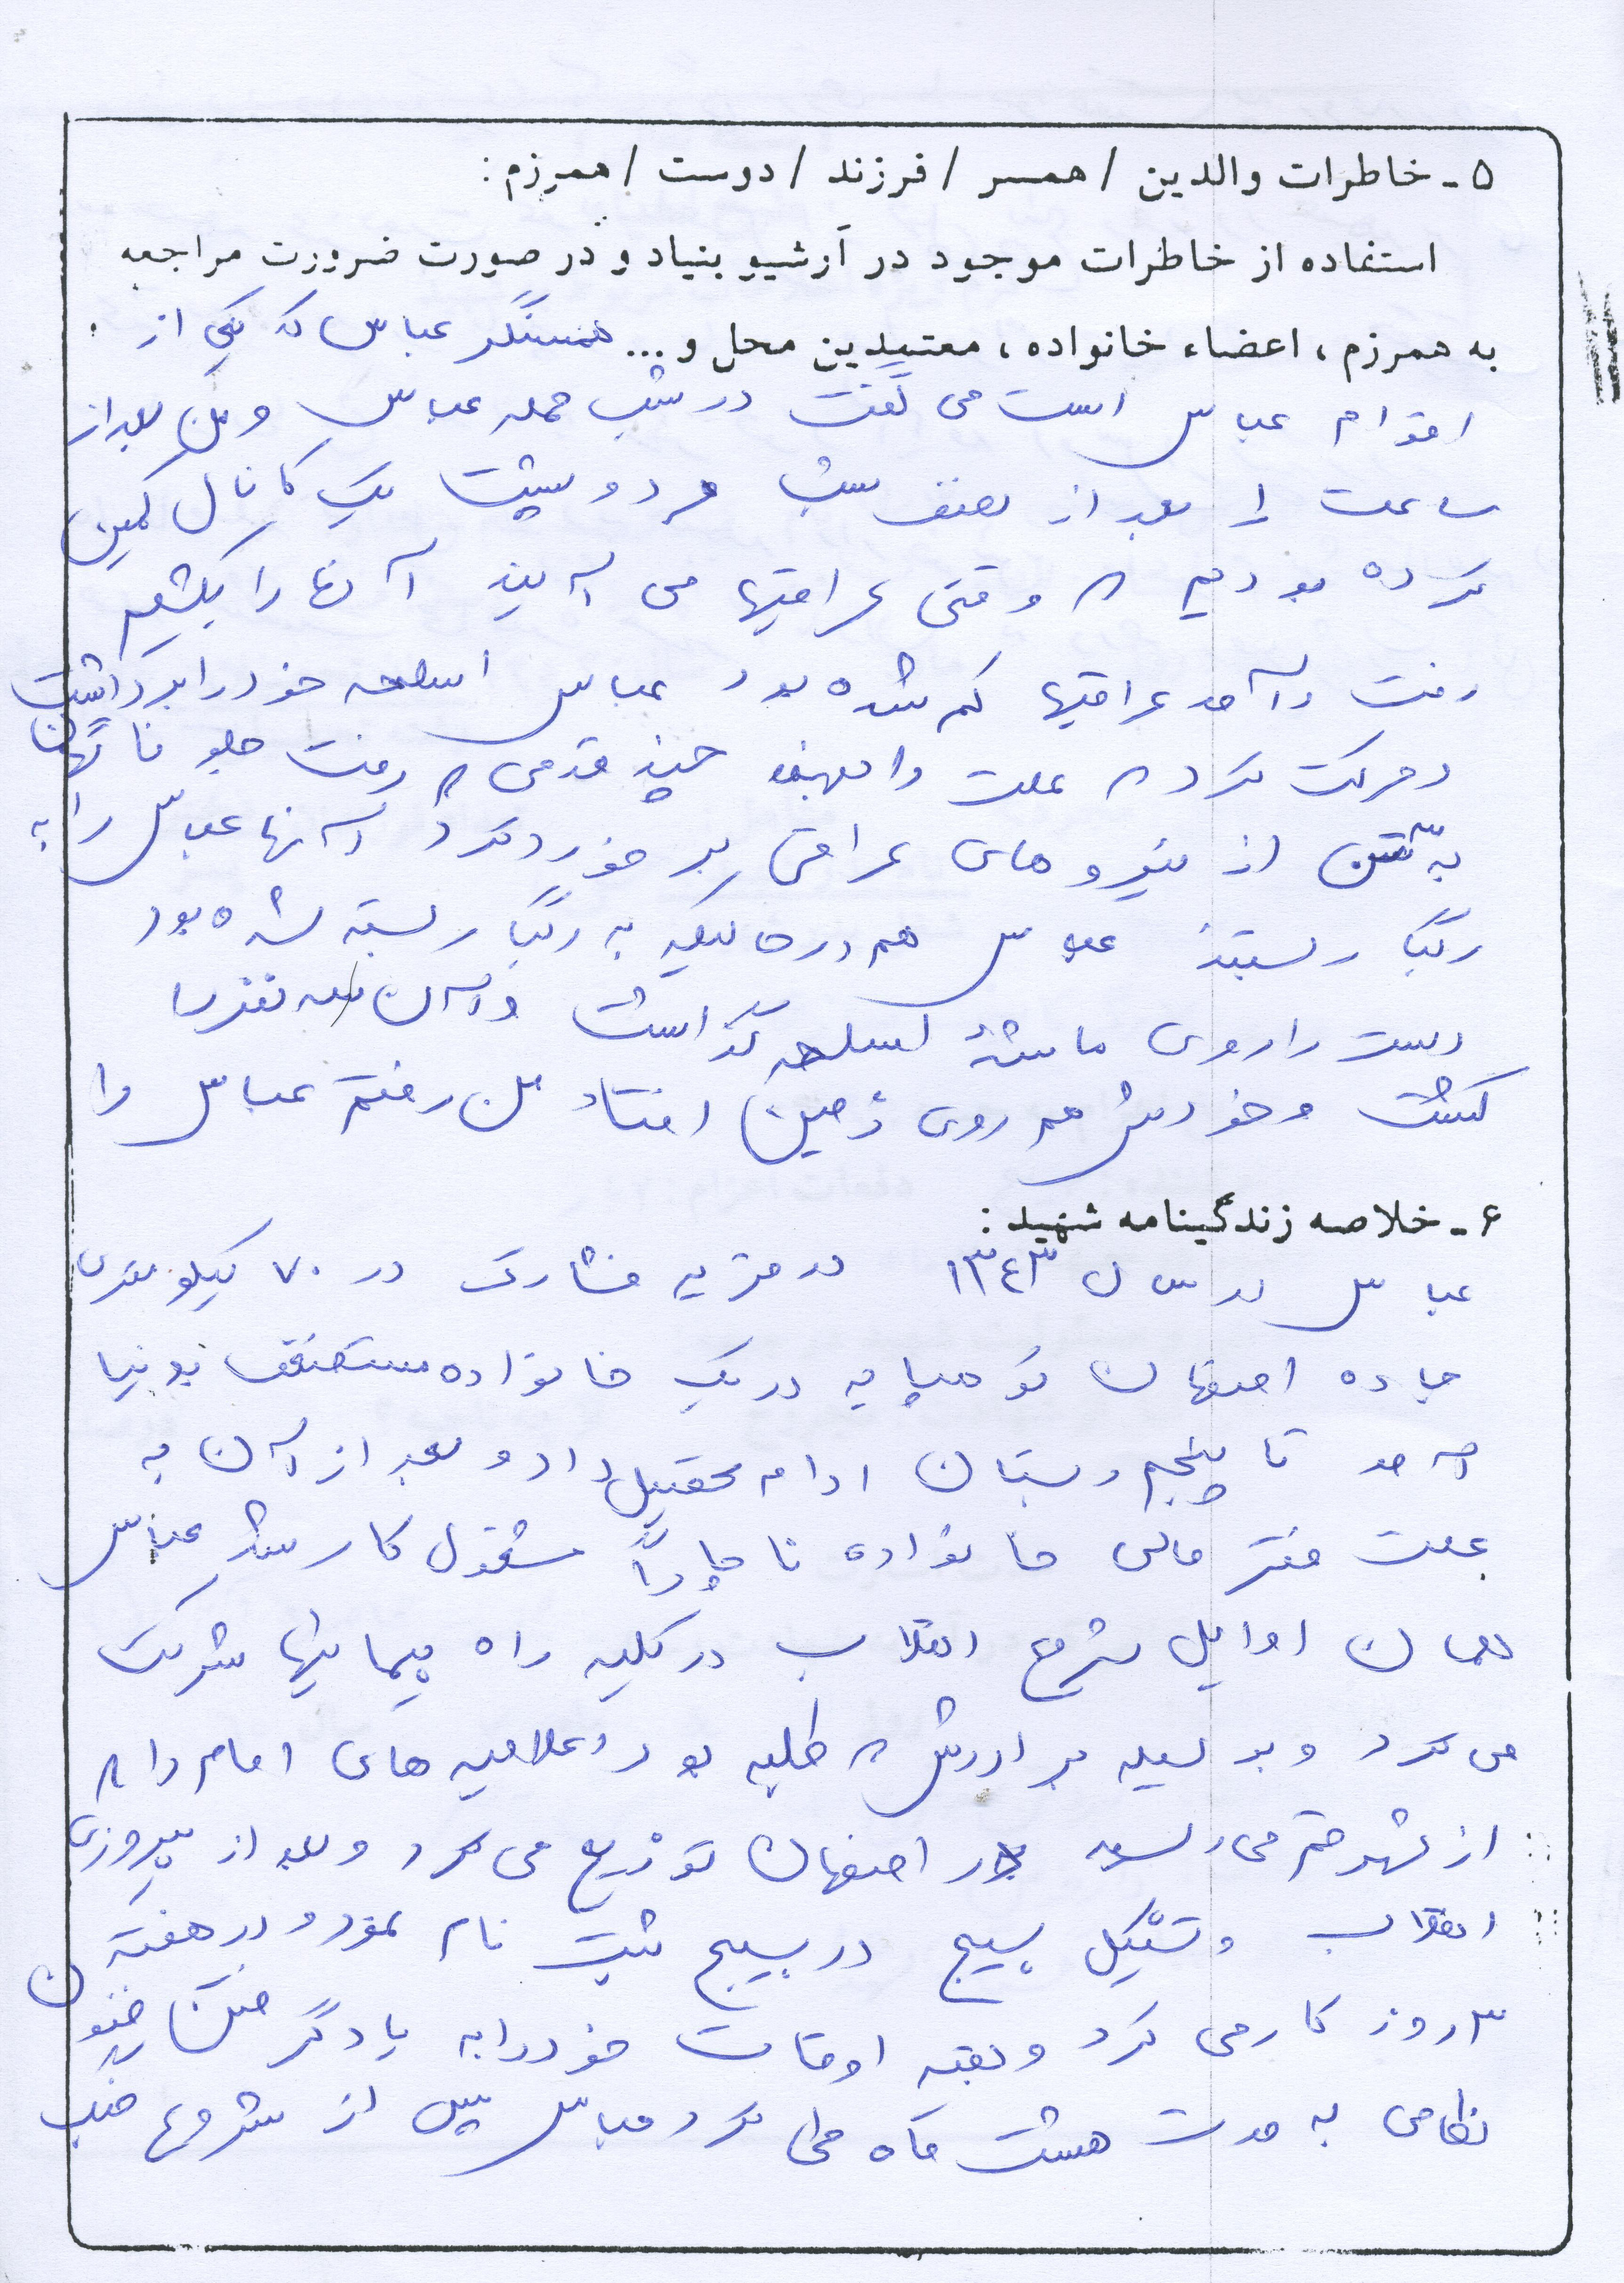 ۵- خاطرات والدین / همسر / فرزند / دوست / همرزم:
استفاده از خاطرات موجود در آرشیو بنیاد و در صورت ضرورت مراجعه
به همرزم، اعضاء خانواده، معتمدین محل و... همسنگر عباس که یکی از
اقوام عباس است می گفت در شب حمله عباس و من بعد از
ساعت ۱ بعد از نصف شب هر دو پشت یک کانال کمین
کرده بودیم که وقتی عراقیها می آیند آنها را بکشیم
رفت و آمد عراقیها کم شده بود عباس اسلحه خود را برداشت
و حرکت کرد چند قدمی که رفت جلو ناگهان
به تن از نیروهای عراقی برخورد کرد آنها عباس را به
رگبار بستند عباس هم در حالیکه به رگبار بسته شده بود
دست را روی ماشه اسلحه گذاشت و آن سه نفر را
کشت و خودش هم روی زمین افتاد من رفتم عباس را
۶- خلاصه زندگینامه شهید:
عباس در سال ۱۳۴۳ در قریه فشارک در ۷۰ کیلومتری
جاده اصفهان کوهپایه در یک خانواده مستضعف بدنیا
آمد تا پنجم دبستان ادامه تحصیل داد و بعد از آن به
علت فقر مالی خانواده ناچاراً مشغول کار شد عباس
همان اوایل شروع انقلاب در کلیه راه پیمائیها شرکت
می کرد و بوسیله برادرش که طلبه بود اعلامیه های امام را که
از شهر قم می رسید در اصفهان توزیع می کرد و بعد از پیروزی
انقلاب و تشکیل بسیج در بسیج ثبت نام نمود و در هفته
۳ روز کار می کرد و بقیه اوقات خود را به یادگرفتن فنون
نظامی به مدت هشت ماه طی کرد عباس پس از شروع جنگ